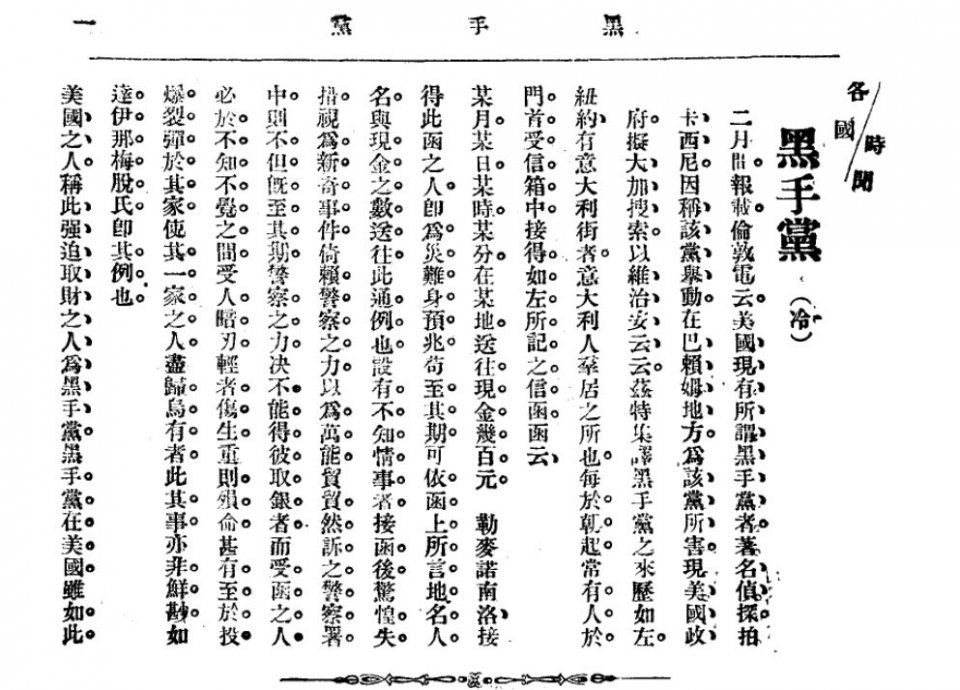 黑手黨
一
各國時聞
黑手黨（冷）
二月間報載倫敦電云美國現有所謂黑手黨者著名偵探拍
卡西尼因稱該黨舉動在巴賴姆地方爲該黨所害現美國政
府擬大加搜索以維治安云云茲特集譯黑手黨之來歷如左
紐約有意大利街者意大利人羣居之所也每於朝起常有人於
門首受信箱中接得如左所記之信函函云
某月某日某時某分在某地送往現金幾百元　勒麥諾南洛接
得此函之人卽爲災難身預兆苟至其期可依函上所言地名人
名與現金之數送往此通例也設有不知情事者接函後驚惶失
措視爲新奇事件倚賴警察之力以爲萬能貿貿然訴之警察署
中則不但旣至其期警察之力决不能得彼取銀者而受函之人
必於不知不覺之間受人暗刃輕者傷生重則殞命甚有至於投
爆裂彈於其家使其一家之人盡歸烏有者此其事亦非鮮尠如
達伊那梅脫氏卽其例也
美國之人稱此强迫取財之人爲黑手黨黑手黨在美國雖如此